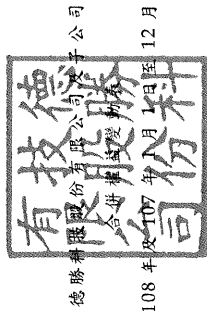 德勝科技股份有限公司及子公司
合併權益變動表
108 年及 107 年 1 月 1 日至 12 月
德勝科
技股份
有限公司